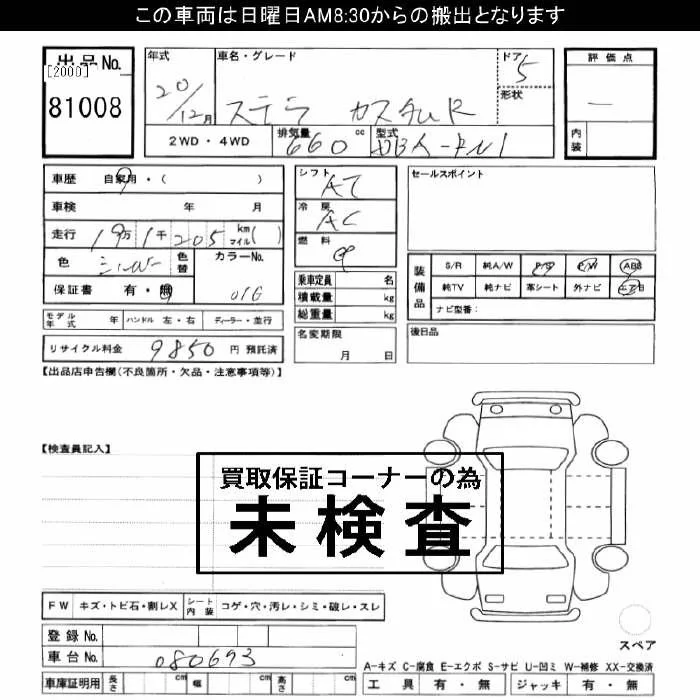 この車両は日曜日AM8:30からの搬出となります
出品No.
[2000]
81008
年式 20/12月
車名・グレード ステラ カスタム R
ドア 5
形状
2WD・4WD
排気量 660 cc
型式 DBA-RN1
評価点
―
内装
車歴 自家用・( )
車検 年 月
走行 19万1千205 km マイル( )
色 シルバー 色替 カラーNo. 01G
保証書 有・無
モデル年式 年 ハンドル 左・右 ディーラー・並行
リサイクル料金 9850 円 預託済
シフト AT
冷房 AC
燃料 G
乗車定員 名
積載量 kg
総重量 kg
名変期限 月 日
セールスポイント
装備品
S/R 純A/W P/S P/W ABS
純TV 純ナビ 革シート 外ナビ エアB
ナビ型番:
後日品
【出品店申告欄(不良箇所・欠品・注意事項等)】
【検査員記入】
買取保証コーナーの為
未検査
FW キズ・トビ石・割レX シート内装 コゲ・穴・汚レ・シミ・破レ・スレ
登録No.
車台No. 080693
車庫証明用 長さ cm 幅 cm 高さ cm
スペア
A-キズ C-腐食 E-エクボ S-サビ U-凹ミ W-補修 XX-交換済
工具 有・無 ジャッキ 有・無